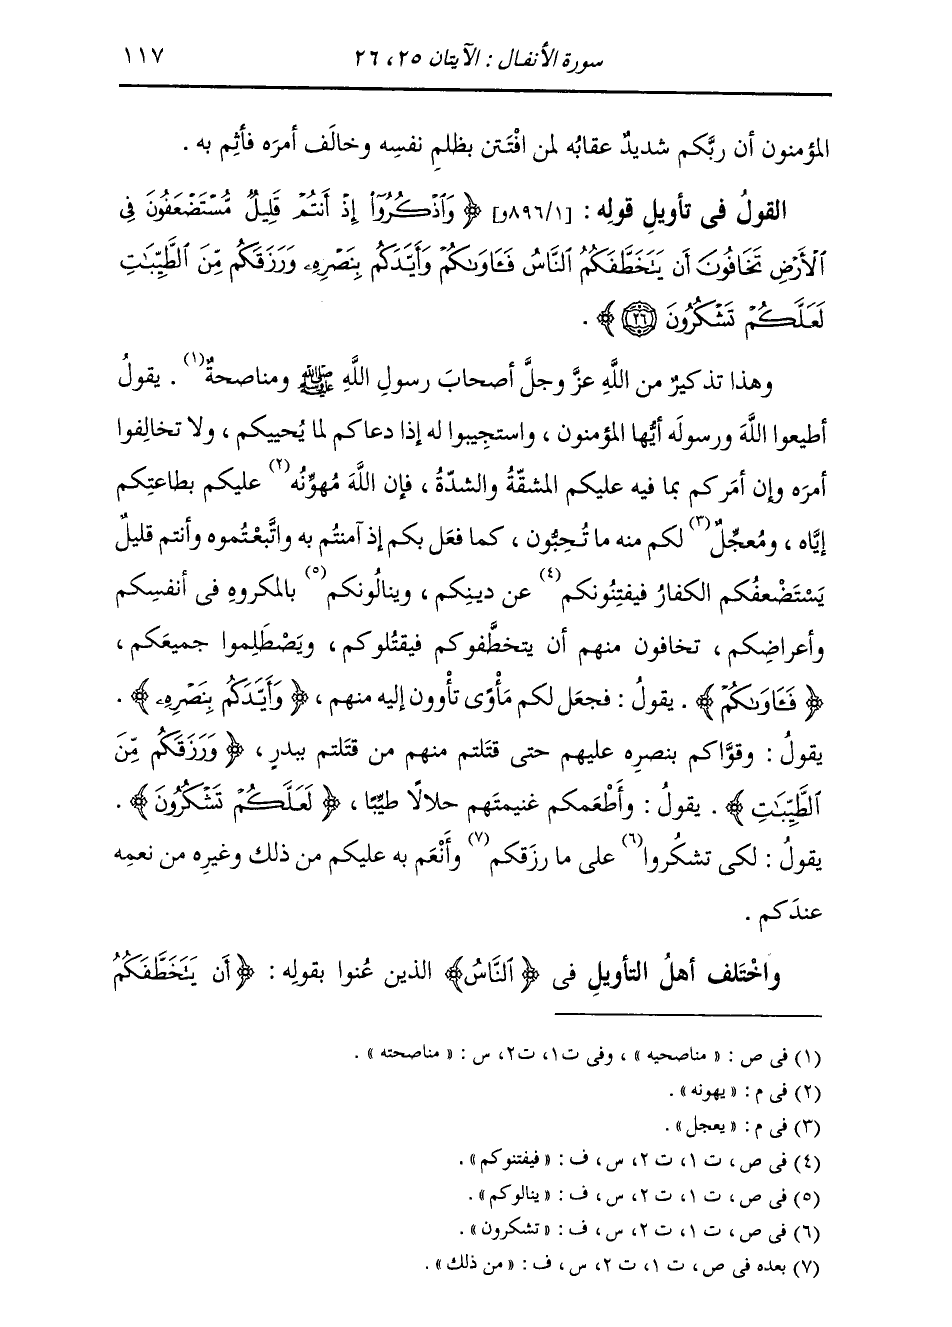 سورة الأنفال : الآيتان ٢٥، ٢٦ ١١٧
المؤمنون أن ربَّكم شديدٌ عقابُه لمن افْتَتن بظلمِ نفسِه وخالَف أمرَه فأثِم به .
القولُ فى تأويلِ قولِه : [٨٩٦/١و] ﴿ وَٱذْكُرُوٓا۟ إِذْ أَنتُمْ قَلِيلٌ مُّسْتَضْعَفُونَ فِى
ٱلْأَرْضِ تَخَافُونَ أَن يَتَخَطَّفَكُمُ ٱلنَّاسُ فَـَٔاوَىٰكُمْ وَأَيَّدَكُم بِنَصْرِهِۦ وَرَزَقَكُم مِّنَ ٱلطَّيِّبَـٰتِ
لَعَلَّكُمْ تَشْكُرُونَ ٢٦ ﴾ .
وهذا تذكيرٌ من اللَّهِ عزَّ وجلَّ أصحابَ رسولِ اللَّهِ ﷺ ومناصحةٌ(١) . يقولُ
أطيعوا اللَّهَ ورسولَه أيُّها المؤمنون ، واستجيبوا له إذا دعاكم لما يُحييكم ، ولا تخالِفوا
أمرَه وإن أمَركم بما فيه عليكم المشقَّةُ والشدّةُ ، فإن اللَّهَ مُهوِّنُه(٢) عليكم بطاعتِكم
إيَّاه ، ومُعجِّلٌ(٣) لكم منه ما تُحِبُّون ، كما فعَل بكم إذ آمنتُم به واتَّبعْتُموه وأنتم قليلٌ
يَسْتَضْعفُكم الكفارُ فيفتِنُونكم(٤) عن دينِكم ، وينالُونكم(٥) بالمكروهِ فى أنفسِكم
وأعراضِكم ، تخافون منهم أن يتخطَّفوكم فيقتُلوكم ، ويَصْطَلِموا جميعَكم ،
﴿ فَـَٔاوَىٰكُمْ ﴾ . يقولُ : فجعَل لكم مَأْوًى تأْوون إليه منهم ، ﴿ وَأَيَّدَكُم بِنَصْرِهِۦ ﴾ .
يقولُ : وقوَّاكم بنصرِه عليهم حتى قتَلتم منهم من قتَلتم ببدرٍ ، ﴿ وَرَزَقَكُم مِّنَ
ٱلطَّيِّبَـٰتِ ﴾ . يقولُ : وأَطْعَمكم غنيمتَهم حلالًا طيِّبًا ، ﴿ لَعَلَّكُمْ تَشْكُرُونَ ﴾ .
يقولُ : لكى تشكُروا(٦) على ما رزَقكم(٧) وأَنْعَم به عليكم من ذلك وغيرِه من نعمِه
عندَكم .
واخْتَلف أهلُ التأويلِ فى ﴿ ٱلنَّاسُ ﴾ الذين عُنوا بقولِه : ﴿ أَن يَتَخَطَّفَكُمُ
(١) فى ص : « مناصحيه » ، وفى ت١، ت٢، س : « مناصحته » .
(٢) فى م : « يهونه » .
(٣) فى م : « يعجل » .
(٤) فى ص ، ت ١، ت ٢، س ، ف : « فيفتنوكم » .
(٥) فى ص ، ت ١، ت ٢، س ، ف : « ينالوكم » .
(٦) فى ص ، ت ١، ت ٢، س ، ف : « تشكرون » .
(٧) بعده فى ص ، ت ١، ت ٢، س ، ف : « من ذلك » .